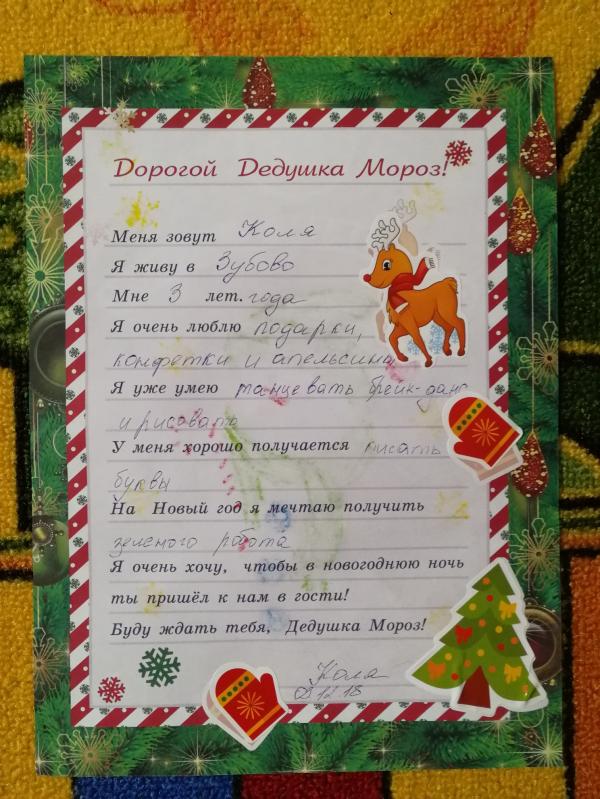 Дорогой Дедушка Мороз!
Меня зовут Коля
Я живу в Зубово
Мне 3 лет. года
Я очень люблю подарки,
конфетки и апельсина
Я уже умею танцевать брейк-данс
и рисовать
У меня хорошо получается писать
буквы
На Новый год я мечтаю получить
зеленого робота
Я очень хочу, чтобы в новогоднюю ночь
ты пришёл к нам в гости!
Буду ждать тебя, Дедушка Мороз!
Коля
09.12.18